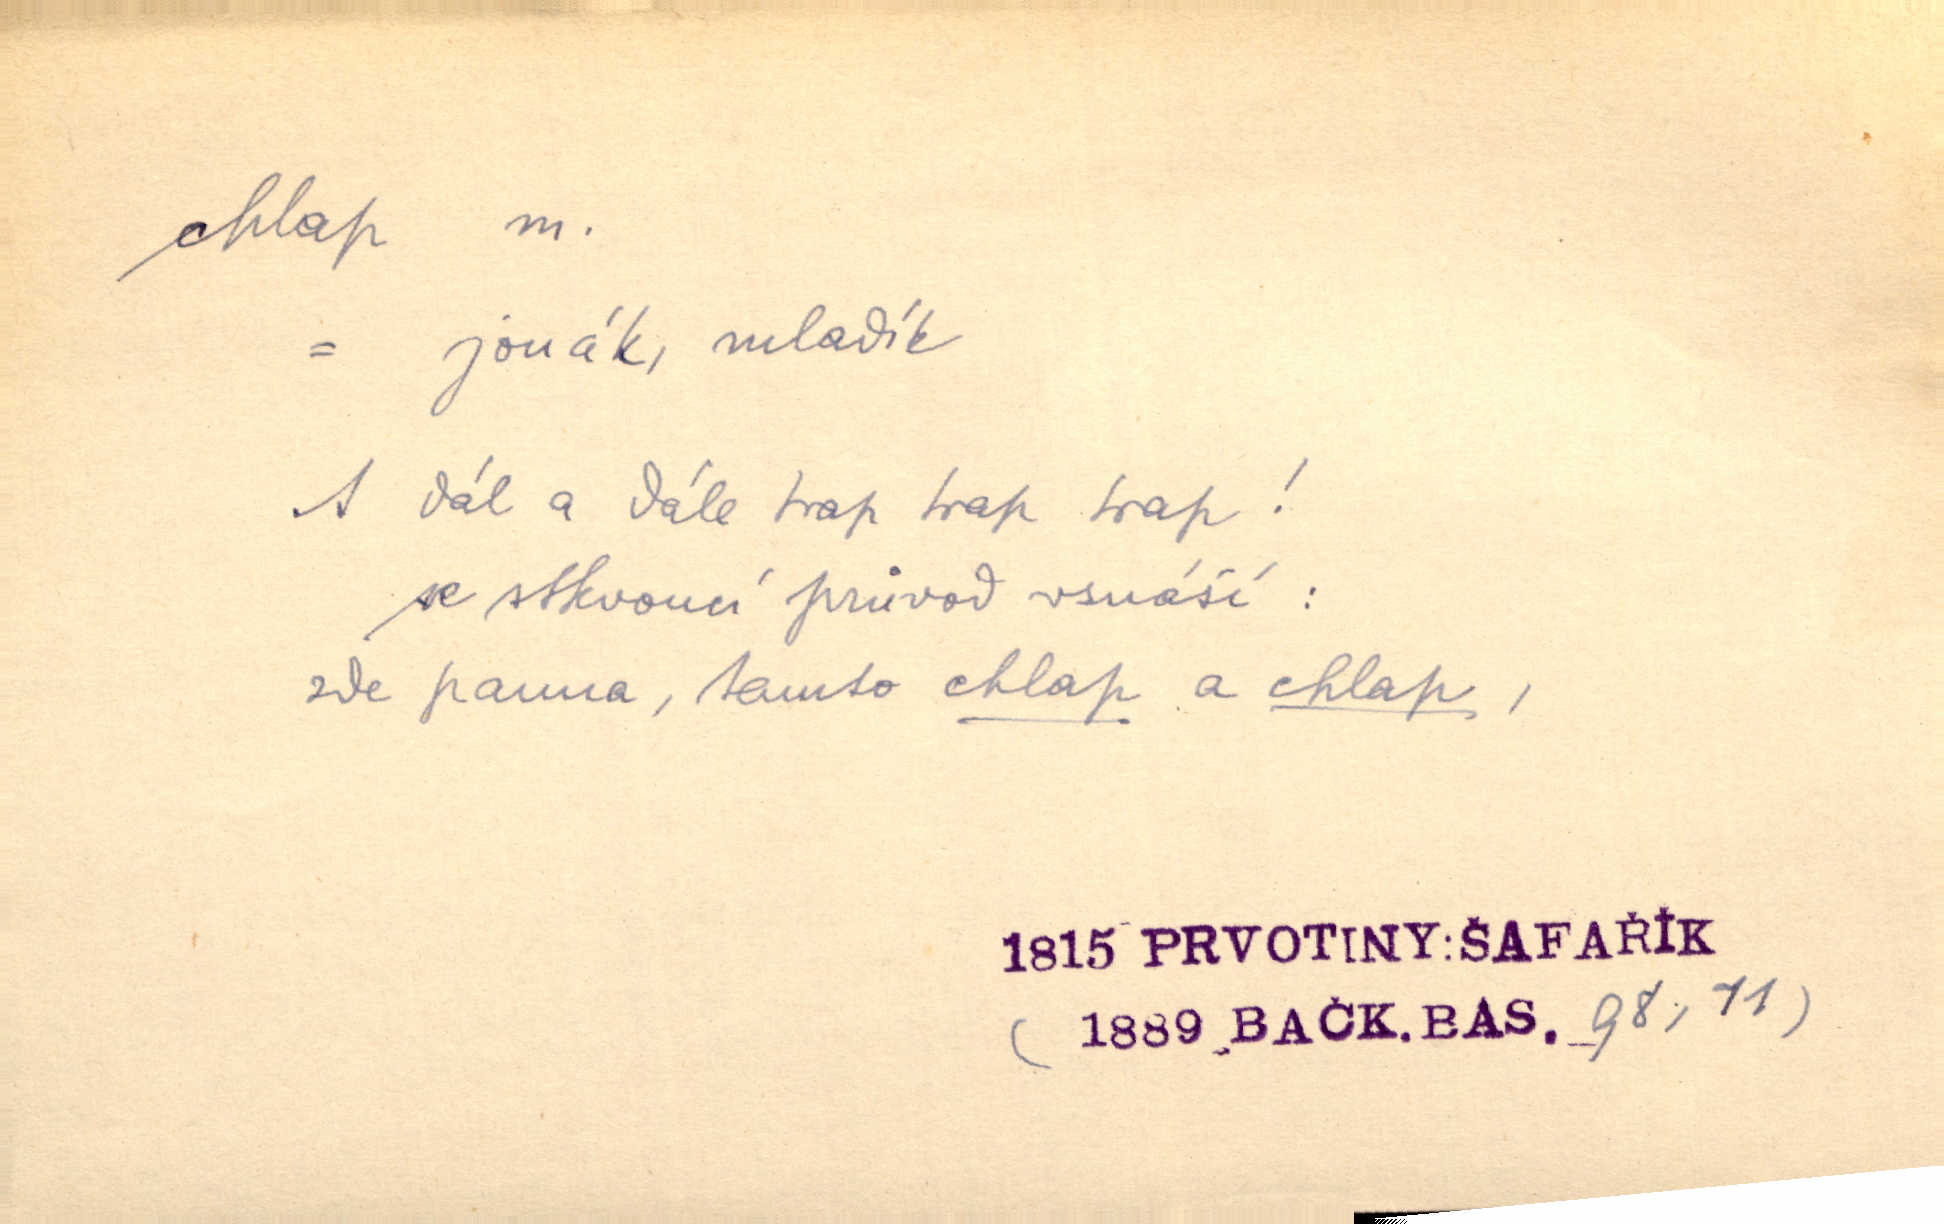 chlap m.
= jonák, mladík
A dál a dále trap trap trap!
se stkvoucí průvod vsnáší:
zde panna, tamto chlap a chlap,
1815 PRVOTINY: ŠAFAŘÍK
( 1889 BAČK. BAS. 98, 71)